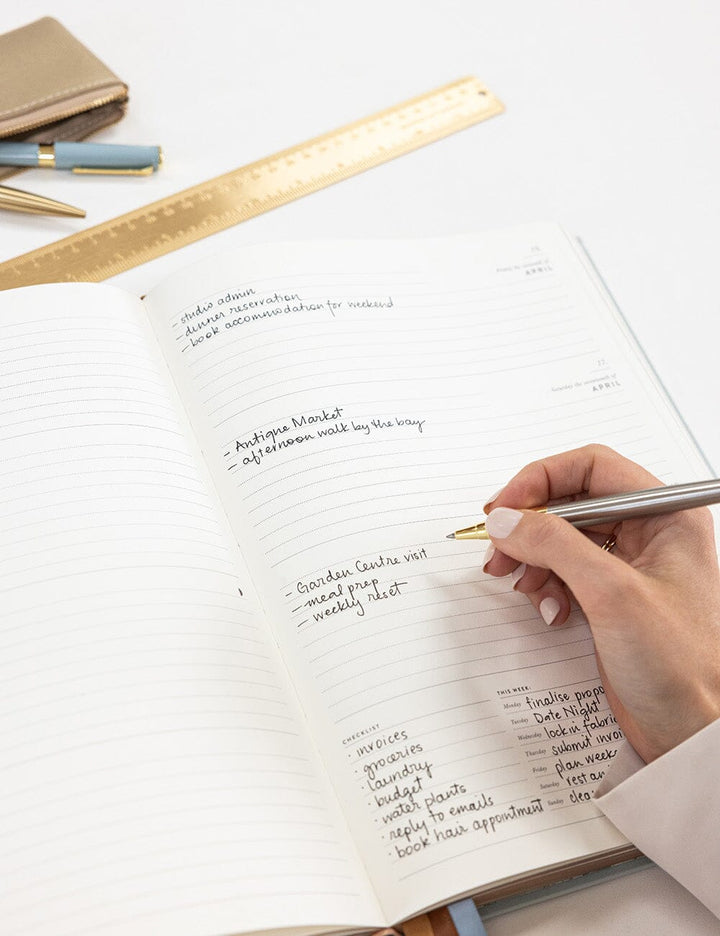 APRIL
- studio admin
- dinner reservation
- book accommodation for weekend
17.
Saturday the seventeenth of
APRIL
- Antique Market
- afternoon walk by the bay
- Garden Centre visit
- meal prep
- weekly reset
CHECKLIST
· invoices
· groceries
· laundry
· budget
· water plants
· reply to emails
· book hair appointment
THIS WEEK:
Monday finalise propo
Tuesday Date Night
Wednesday lock in fabric
Thursday submit invoi
Friday plan week
Saturday rest an
Sunday clea